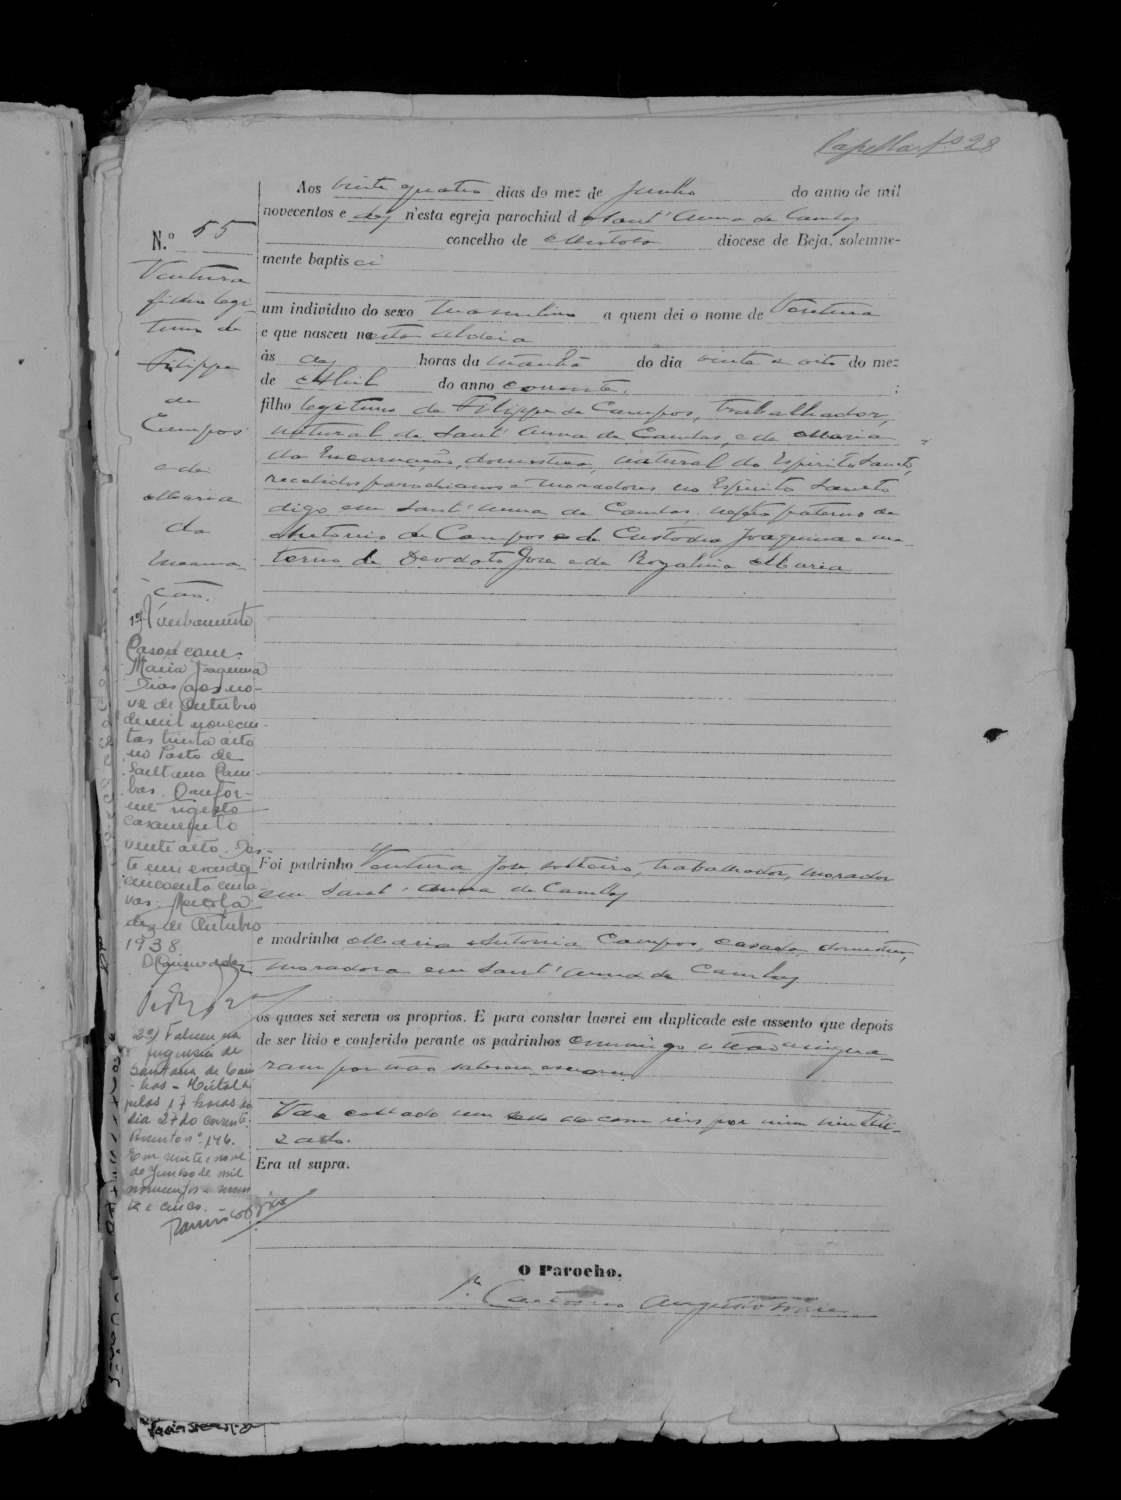 fs 28
Aos vinte quatro dias do mez de Junho do anno de mil
novecentos e dez n'esta egreja parochial d Sant' Anna de Cambas
concelho de Mertola diocese de Beja, solemne-
mente baptisei
um individuo do sexo masculino a quem dei o nome de Ventura
e que nasceu nesta Aldeia
ás dez horas da manhã do dia vinte e oito do mez
de Abril do anno corrente.
filho legitimo de Filippe de Campos, trabalhador,
natural de Sant' Anna de Cambas, e de Maria
da Encarnação, domestica, natural do Espirito Santo,
recebidos parochianos e moradores no Espirito Santo
digo em Sant' Anna de Cambas, neto paterno de
Antonio de Campos e de Custodia Joaquina e ma-
terno de Deodato José e de Rozalina Maria
Foi padrinho Ventura José solteiro, trabalhador, morador
em Sant' Anna de Cambas
e madrinha Maria Antonia Campos, casada, domestica,
moradora em Sant' Anna de Cambas
os quaes sei serem os proprios. E para constar lavrei em duplicado este assento que depois
de ser lido e conferido perante os padrinhos commigo não assigna-
ram por não saberem escrever.
Vae collado um sello de cem reis por mim inutili-
zado.
Era ut supra.
O Parocho,
P.e Augusto
N.º 55
Ventura
filho legi-
timo de
Filippe
de
Campos
e de
Maria
da
Encarna-
ção.
1º) Averbamento
Casou com
Maria Joaquina
Dias aos no-
ve de Outubro
de mil novecen-
tos trinta oito
no Posto de
Santana Cam-
bas. Confor-
me registo
casamento
vinte oito. Des-
te emenda
cincoenta centa-
vos. Mertola
dez de Outubro
1938
2º) Faleceu na
freguesia de
Santana de Cam-
bas - Mertola
pelas 17 horas do
dia 27 do corrente.
Assento nº 146.
Em vinte e nove
de Junho de mil
novecentos e
ta e cinco.